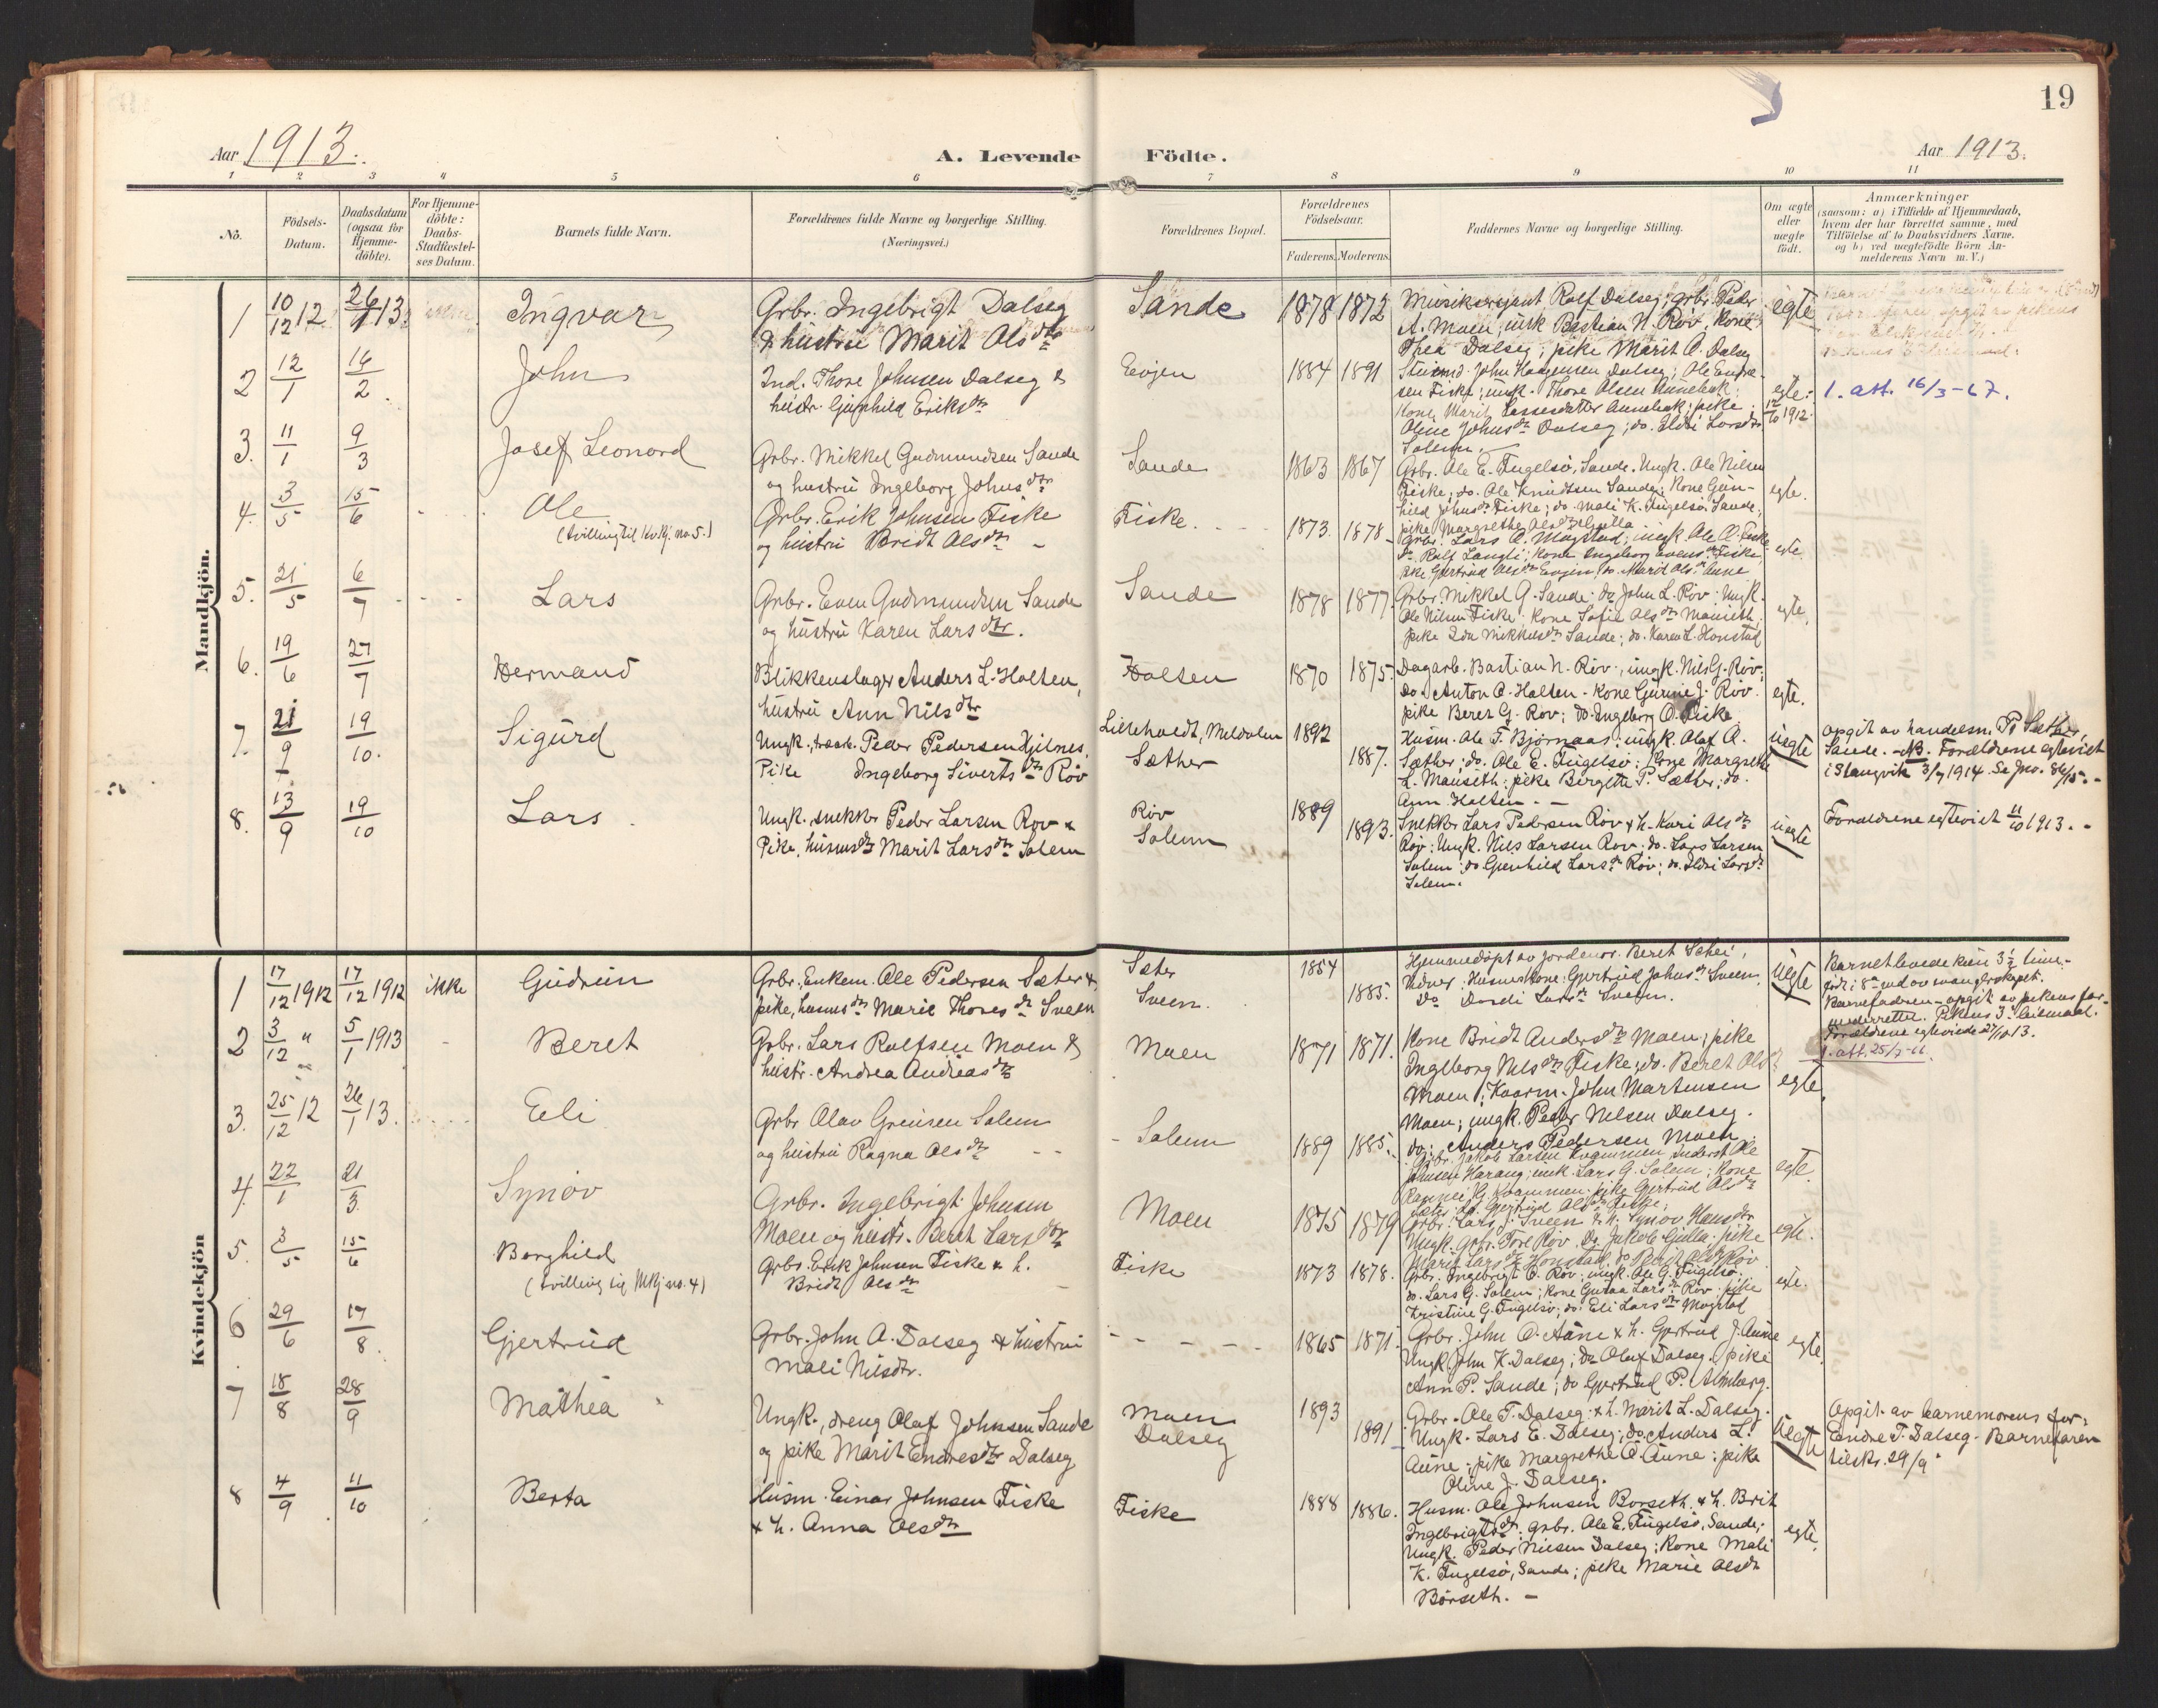 19
Aar 1913.
A. Levende Födte.
Aar 1913.
1 2 3 4 5 6 7 8 9 10 11
No.
Födsels-
Datum.
Daabsdatum
(ogsaa for
Hjemme-
döbte).
For Hjemme-
döbte:
Daabs-
Stadfæstel-
ses Datum.
Barnets fulde Navn.
Forældrenes fulde Navne og borgerlige Stilling.
(Næringsvei.)
Forældrenes Bopæl.
Forældrenes
Födselsaar.
Faderens. Moderens.
Faddernes Navne og borgerlige Stilling.
Om ægte
eller
uægte
födt.
Anmærkninger
(saasom: a) i Tilfælde af Hjemmedaab,
hvem der har forrettet samme, med
Tilföielse af to Daabsvidners Navne,
og b) ved uægtefödte Börn An-
melderens Navn m. V.)
Mandkjön.
1 10/12 12 26/1 13. Ingvar
Grbr. Ingebrigt Dalseg
& hustru Marit Olsdtr
Sande 1878 1872
Musiksersjant Rolf Dalseg; grbr. Peder
A. Moen; ungk Bastian N. Röv, Kone
Thea Dalseg; pike Marit O. Dalseg
egte
2 12/1 16/2. John
Ind. Thore Johnsen Dalseg &
hustr. Gunhild Eriksdtr
Evjen 1884 1891
John Haagensen Dalseg; Ole Endre-
sen Fiske; ungk. Thore Olsen Aunebak;
Kone Marit Lassesdatter Aunebak; pike
Oline Johnsdtr Dalseg; do. Ildri Larsdtr
Solem.
egte.
1912.
1. att. 16/3-67.
3. 11/1 9/3 Josef Leonard
Grbr. Mikkel Gudmundsen Sande
og hustru Ingeborg Johnsdtr
Sande 1863 1867
Grbr. Ole E. Fugelsö, Sande. Ungk. Ole Nilsen
Fiske; do. Ole Knudtsen Sande; Kone Gun-
hild Johnsdtr Fiske; do. Mali K. Fugelsö, Sande;
pike Margrethe Olsdtr Gulla
egte.
4. 3/5 15/6 Ole
(tvilling til Kv.Kj. no. 5.)
Grbr. Erik Johnsen Fiske
og hustru Bridt Olsdtr
Fiske. 1873. 1878
Grbr. Lars O. Mogstad; ungk. Ole O. Fiske
do. Rolf Langli; Kone Ingeborg Evensdtr Fiske;
pike Gjertrud Olsdtr Evjen; do. Marit Olsdtr Aune
egte.
5. 21/5 6/7 Lars
Grbr. Even Gudmundsen Sande
og hustru Karen Larsdtr.
Sande 1878 1877.
Grbr. Mikkel G. Sande; do John L. Röv; Ungk.
Ole Nilsen Fiske; Kone Sofie Olsdtr Mauseth;
pike Ida Mikkelsdtr Sande; do. Karen L. Honstad
egte.
6. 19/6 27/7 Hermand
Blikkenslager Anders L. Holten,
hustru Ann Nilsdtr
Holten 1870 1875.
Dagarb. Bastian N. Röv; ungk. Nils G. Röv;
do. Anton O. Holten. Kone Gurine J. Röv.
pike Beret G. Röv; do. Ingeborg O. Fiske.
egte.
7. 21/9 19/10. Sigurd
Ungk., Peder Pedersen Hjelnes,
Pike Ingeborg Sivertsdtr Röv
Lillehaldt, Meldalen 1892
Sæther 1887.
Husm. Ole T. Bjørnaas; ungk. Olaf A.
Sæther; do. Ole E. Fugelsö; Kone Margrethe
L. Mauseth; pike Bergitte P. Sæther; do.
Ann Holten. –
uegte
opgit av handelsm. P. Sæther,
Sande. – NB. Forældrene egteviet
i Stangvik 3/7 1914. Se Jno. 86/15. –
8. 13/9 19/10 Lars.
Ungk. snekker Peder Larsen Röv &
Pike, husmsdtr Marit Larsdtr Solem
Röv 1889
Solem 1893.
Snekker Lars Pedersen Röv & h. Kari Olsdtr
Röv; Ungk. Nils Larsen Röv; do. Lars Larsen
Solem; do Gunhild Larsdtr Röv; do. Ildri Larsdtr
Solem.
uegte
Forældrene egteviet 11/10 1913. –
Kvindekjön
1 17/12 1912 17/12 1912 ikke Gudrun
Grbr. Enkem. Ole Pedersen Sæter &
pike, husmsdtr Marie Thoresdtr Sveen
Sæter 1854
Sveen. 1885.
Hjemmedöpt av jordmor Beret Schei,
Vidner: Husmskone Gjertrud Johnsdtr Sveen.
do Dordi Larsdtr Sveen.
Uegte
Barnet levede kun 3 1/2 time.
födt i 8de md av svangerskapet.
Barnefaderen opgit av pikens far.
Pikens 3die leiermaal.
Forældrene egteviede 27/10 13.
1. att. 25/7-66.
2 3/12 " 5/1 1913 Beret
Grbr. Lars Rolfsen Moen &
hustr. Andrea Andreasdtr
Moen 1871 1871.
Kone Bridt Andersdtr Moen; pike
Ingeborg Nilsdtr Fiske; do. Beret Olsdtr
Moen; Kaarm. John Martinsen
Moen; ungk. Peder Nilsen Dalseg.
do. Anders Pedersen Moen
egte.
3. 25/12 12 26/1 13. Eli
Grbr Olav Greusen Solem
og hustru Ragna Olsdtr
Solem 1889 1885.
Grbr. Jakob Larsen Kvammen, Inderst Ole
Johnsen Harang; ungk. Lars G. Solem; Kone
Rannei G. Kvammen; pike Gjertrud Olsdtr
Sæter; do. Gjertrud Olsdtr Fiske;
egte.
4. 22/1 21/3. Synöv
Grbr. Ingebrigt Johnsen
Moen og hustr. Beret Larsdtr
Moen 1875 1879
Grbr. Lars J. Sveen & h. Synöv Hansdtr
Ungk. grbr. Tore Röv. do. Jakob Gulla; pike
Marit Larsdtr Honstad; do Beret Olsdtr Röv
egte.
5. 3/5 15/6 Borghild
(tvilling til MKj no. 4)
Grbr. Erik Johnsen Fiske & h.
Bridt Olsdtr
Fiske 1873 1878.
Grbr. Ingebrigt O. Röv; ungk. Ole G. Fugelsö.
do. Lars G. Solem; Kone Larsdtr Röv; pike
Kristine G. Fugelsö; do. Eli Larsdtr Mogstad
egte.
6 29/6 17/8. Gjertrud
Grbr. John A. Dalseg & hustru
Mali Nilsdtr.
1865 1871.
Grbr. John O. Aune & h. Gjertrud J. Aune
Ungk. John K. Dalseg; do Oluf Dalseg. pike
Ann P. Sande; do Gjertrud P. Almberg.
egte.
7 18/8 28/9 Mathea
Ungk., dreng Olaf Johnsen Sande
og pike Marit Endresdtr Dalseg
Moen 1893
Dalseg 1891
Grbr. Ole T. Dalseg & h. Marit L. Dalseg.
Ungk. Lars E. Dalseg; do Anders L.
Aune; pike Margrethe O. Aune; pike
Oline J. Dalseg.
Uegte
Opgit av barnemorens far:
Endre T. Dalseg. Barnefaren
tilskr. 29/9
8 4/9 11/10 Berta
Husm. Einar Johnsen Fiske
& h. Anna Olsdtr
Fiske 1888 1886.
Husm. Ole Johnsen Borseth & h. Brit
Ingebrigtsdtr; grbr. Ole E. Fugelsö, Sande;
Ungk. Peder Nilsen Dalseg; Kone Mali
K. Fugelsö, Sande; pike Marie Olsdtr
Börseth. –
egte.